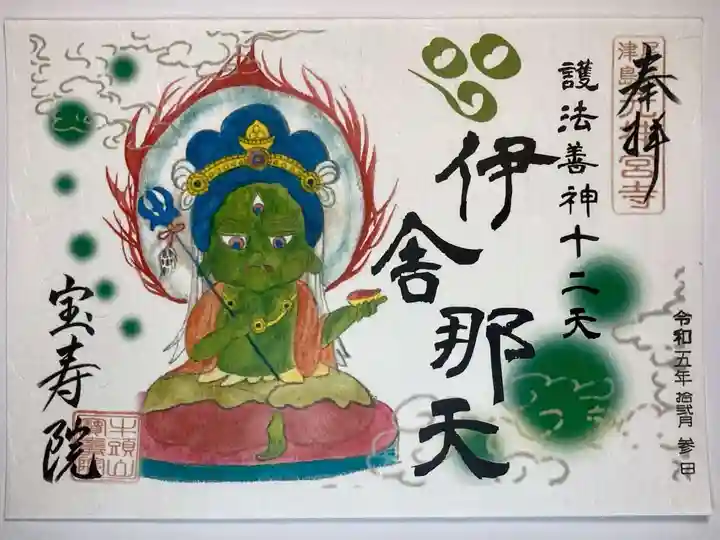 奉拝
護法善神十二天
伊舎那天
令和五年拾弐月参日
宝寿院
牛頭山